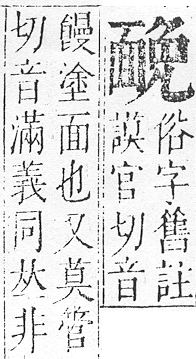 俗字舊註
謨官切音
饅塗面也又莫管
切音滿義同𠀤非